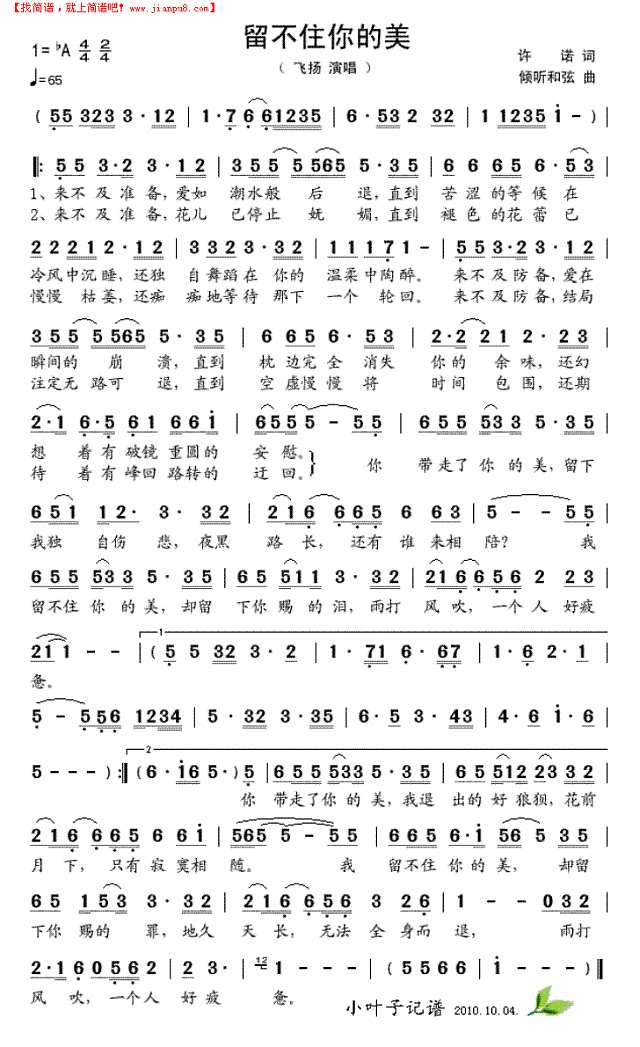 【找简谱，就上简谱吧！www.jianpu8.com】
留不住你的美
1=♭A 4/4 2/4
♩=65
（ 飞扬 演唱 ）
许 诺 词
倾听和弦 曲
( 55 323 3 · 12 | 1 · 7 6 61235 | 6 · 53 2 32 | 1 1235 i – ) |
‖: 5 5 3·2 3 · 12 | 355 5 565 5 · 35 | 6 6 65 6 · 53 |
1、来不 及 准 备，爱如 潮水般 后 退，直到 苦 涩的等 候 在
2、来不 及 准 备，花儿 已停止 妩 媚，直到 褪 色的花 蕾 已
2 2 2 2 1 2 · 12 | 33 23 3 · 32 | 1 1 1 7 1 – | 5 5 3·2 3 · 12 |
冷风中沉 睡，还独 自舞蹈在 你的 温柔中陶醉。 来不及防备，爱在
慢慢 枯萎，还痴 痴地等待 那下 一个 轮回。 来不及防备，结局
355 5 565 5 · 35 | 6 65 6 · 5 | 2·2 21 2 · 23 |
瞬间的 崩 溃，直到 枕 边完全 消失 你 的 余 味，还幻
注定无 路可 退，直到 空 虚慢慢 将 时 间 包 围，还期
2·1 6·5 61 66i | 6555 5 – 55 | 655 533 5 · 35 |
想 着 有 破镜 重圆的 安 慰。 你 带走了 你 的 美，留下
待 着 有 峰回 路转的 迂 回。
651 12· 3 · 32 | 216 665 6 63 | 5 – – 55 |
我独 自伤 悲，夜黑 路 长，还有 谁 来相 陪？ 我
655 533 5 · 35 | 65 511 3 · 32 | 216 6565 2 23 |
留不住 你 的 美，却留 下你 赐 的 泪，雨打 风 吹，一个 人 好疲
211 – – | 1 ( 5 5 32 3 · 2 | 1 · 71 6 · 67 | 1 · 6 2 · 1 |
惫。
5 – 5 56 1234 | 5 · 32 3 · 35 | 6 · 5 3 · 43 | 4 · 6 i · 6 |
5 – – – ) :‖ 2 ( 6 · i6 5 · ) 5 | 655 533 5 · 35 | 65 512 233 32 |
你 带走了 你 的 美，我退 出的 好 狼狈，花前
216 665 6 6i | 565 5 – 55 | 655 6·i 56 5 35 |
月 下， 只有 寂寞相 随。 我 留不住 你 的 美， 却留
65 153 3 · 32 | 216 165 3 26 | 1 – – 032 |
下你 赐的 罪，地久 天 长，无法 全 身而 退， 雨打
2·16 0565 | 2 · 3 | 12 1 – – – | ( 5566 | 1 – ) ‖
风 吹，一个人 好疲 惫。
小叶子记谱 2010.10.04.